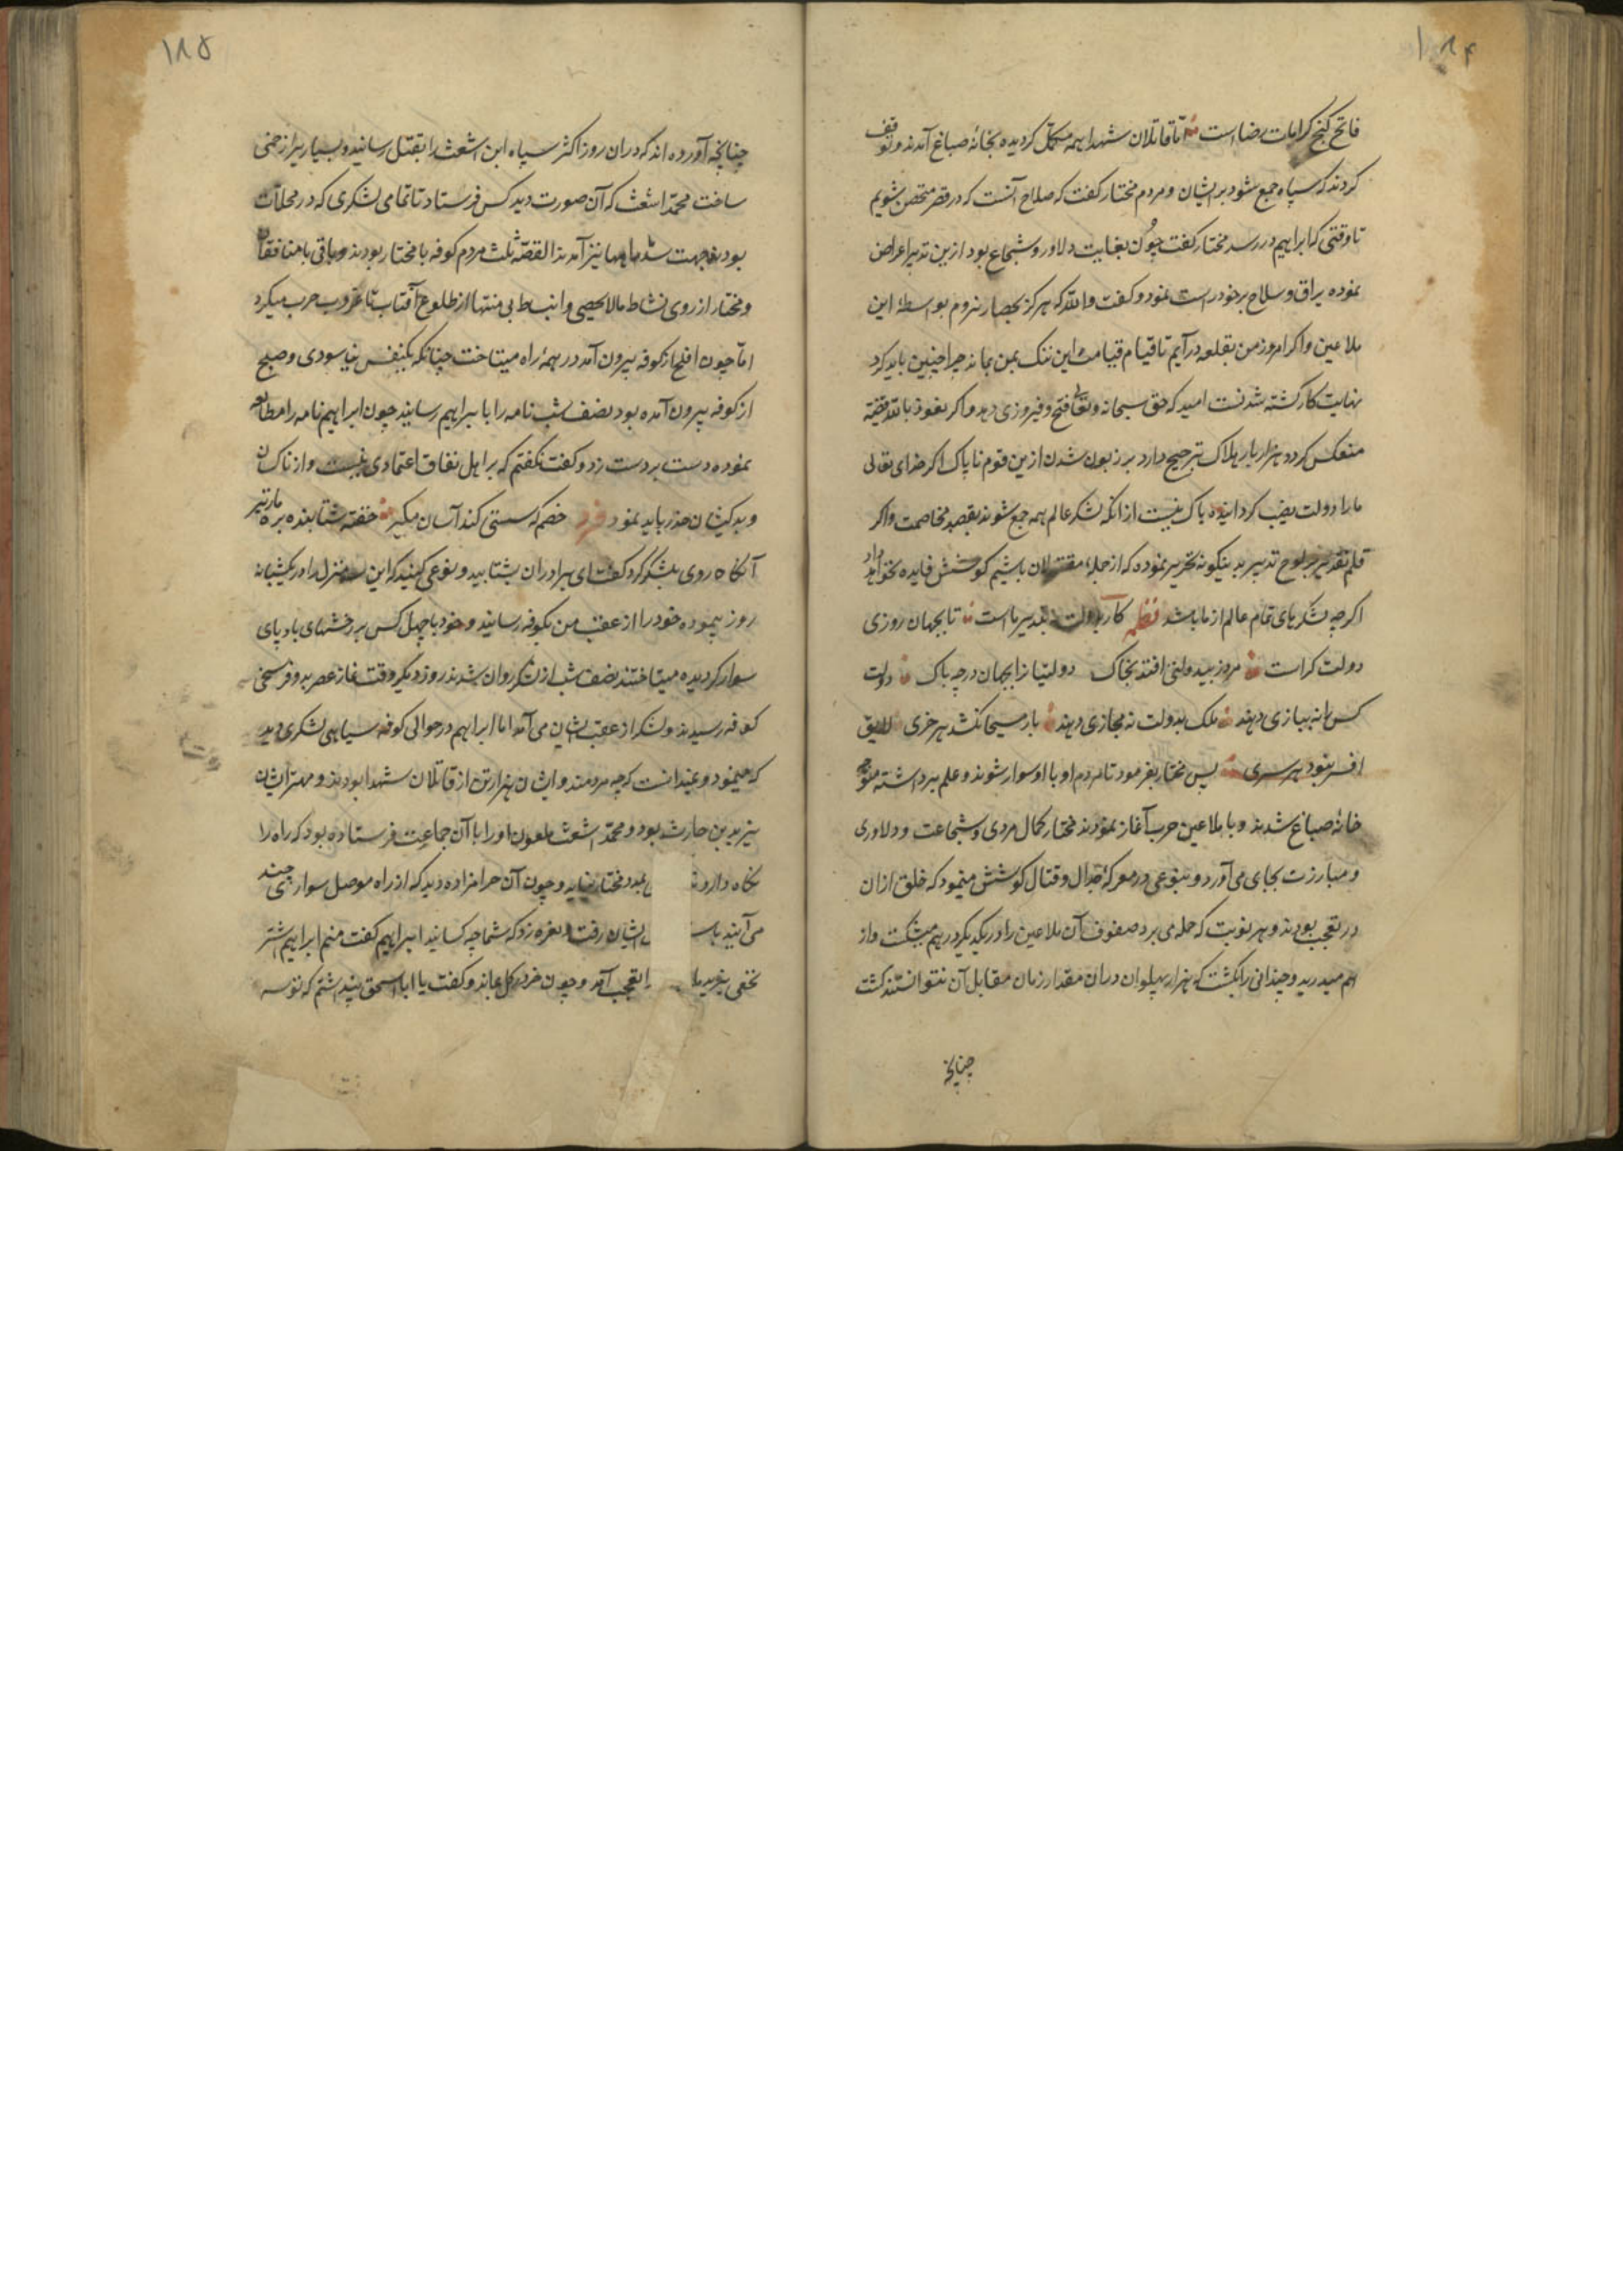 ۱۸۴
فاتح کنج کرامات رضا است اما قاتلان شهدا همه مکمل کردیده بخانه صباغ آمدند و توقف
کردند که سپاه جمع شود بر ایشان و مردم مختار کفت که صلاح آنست که در قصر متحصن شویم
تا وقتی که ابراهیم در رسد مختار کفت چون بغایت دلاور و شجاع بود ازین تدبیر اعراض
نموده یراق و سلاح بر خود راست نمود و کفت والله که هرکز بحصار نروم بواسطه این
ملاعین و اکر امروز من بقلعه درآیم تا قیام قیامت این ننک بمن بماند چرا چنین باید کرد
نهایت کار کشته شدنست امید که حق سبحانه و تعالی فتح و فیروزی دهد و اکر نعوذ بالله قضیه
منعکس کردد هزار بار هلاک ترجیح دارد بر زبون شدن ازین قوم ناپاک اکر خدای تعالی
ما را دولت نصیب کردانیده باک نیست از انکه لشکر عالم همه جمع شوند بقصد مخاصمت و اکر
قلم تقدیر بر لوح تدبیر بدینکونه تحریر نموده که از جمله مقتولان باشیم کوشش فایده نخواهد داد
اکرچه لشکرهای تمام عالم از ما باشد نظم کار بدولت نه بتدبیر ماست تا بجهان روزی
دولت کراست مرد ز بیدولتی افتد بخاک دولتیانرا بجهان در چه باک دولت
کس را نه ببازی دهند ملک بدولت نه مجازی دهند بار مسیحا نکشد هر خری لایق
افسر نبود هر سری پس مختار بفرمود تا مردم او با او سوار شوند و علم برداشته متوجه
خانه صباغ شدند و با ملاعین حرب آغاز نمودند مختار کمال مردی و شجاعت و دلاوری
و مبارزت بجای می آورد و بنوعی در معرکه جدال و قتال کوشش مینمود که خلق ازان
در تعجب بودند و هر نوبت که حمله می برد صفوف آن ملاعین را در یکدیکر در هم میشکست و از
هم میدرید و چندانی را بکشت که هزار پهلوان دران مقدار زمان مقابل آن نتوانستند کشت
چنانچه
۱۸۵
چنانچه آورده اند که دران روز اکثر سپاه ابن اشعث را بقتل رسانید و بسیاریرا زخمی
ساخت محمد اشعث که آن صورت دید کس فرستاد تا تمامی لشکری که در محلات
بودند جهت سد راهها نیز آمدند القصه ثلث مردم کوفه با مختار بودند و باقی با منافقان
و مختار از روی نشاط مالا یحصی و انبساط بی منتها از طلوع آفتاب تا غروب حرب میکرد
اما چون افلح از کوفه بیرون آمد در همه راه میتاخت چنانکه یکنفس نیاسودی و صبح
از کوفه بیرون آمده بود نصف شب نامه را با براهیم رسانید چون ابراهیم نامه را مطالعه
نموده دست بر دست زد و کفت نکفتم که بر اهل نفاق اعتمادی نیست و از ناکسان
و بدکیشان حذر باید نمود فرد خصم که سستی کند آسان مکیر خفته شتابنده بره مار تیر
آنکاه روی بلشکر کرد کفت ای برادران بشتابید و نوعی کنید که این سه منزل را در یکشبانه
روز پیموده خود را از عقب من بکوفه رسانید و خود با چهل کس بر رخشهای باد پای
سوار کردیده میتاختند نصف شب از لشکر روان شدند روز دیکر وقت نماز عصر بدو فرسخی
کوفه رسیدند و لشکر از عقب ایشان می آمد اما ابراهیم در حوالی کوفه سیاهی لشکری دید
که مینمود و نمیدانست که چه مردمند و ایشان هزار تن از قاتلان شهدا بودند و مهتر ایشان
یزید بن حارث بود و محمد اشعث ملعون او را با آن جماعت فرستاده بود که راه را
نکاه دارد بمدد مختار نیاید و چون آن حرامزاده دید که از راه موصل سواری چند
می آیند ایشان رفت و نعره زد که شما چه کسانید ابراهیم کفت منم ابراهیم اشتر
نخعی تعجب آمد و چون خر در کل بماند و کفت یا ابا اسحق پنداشتم که توسه